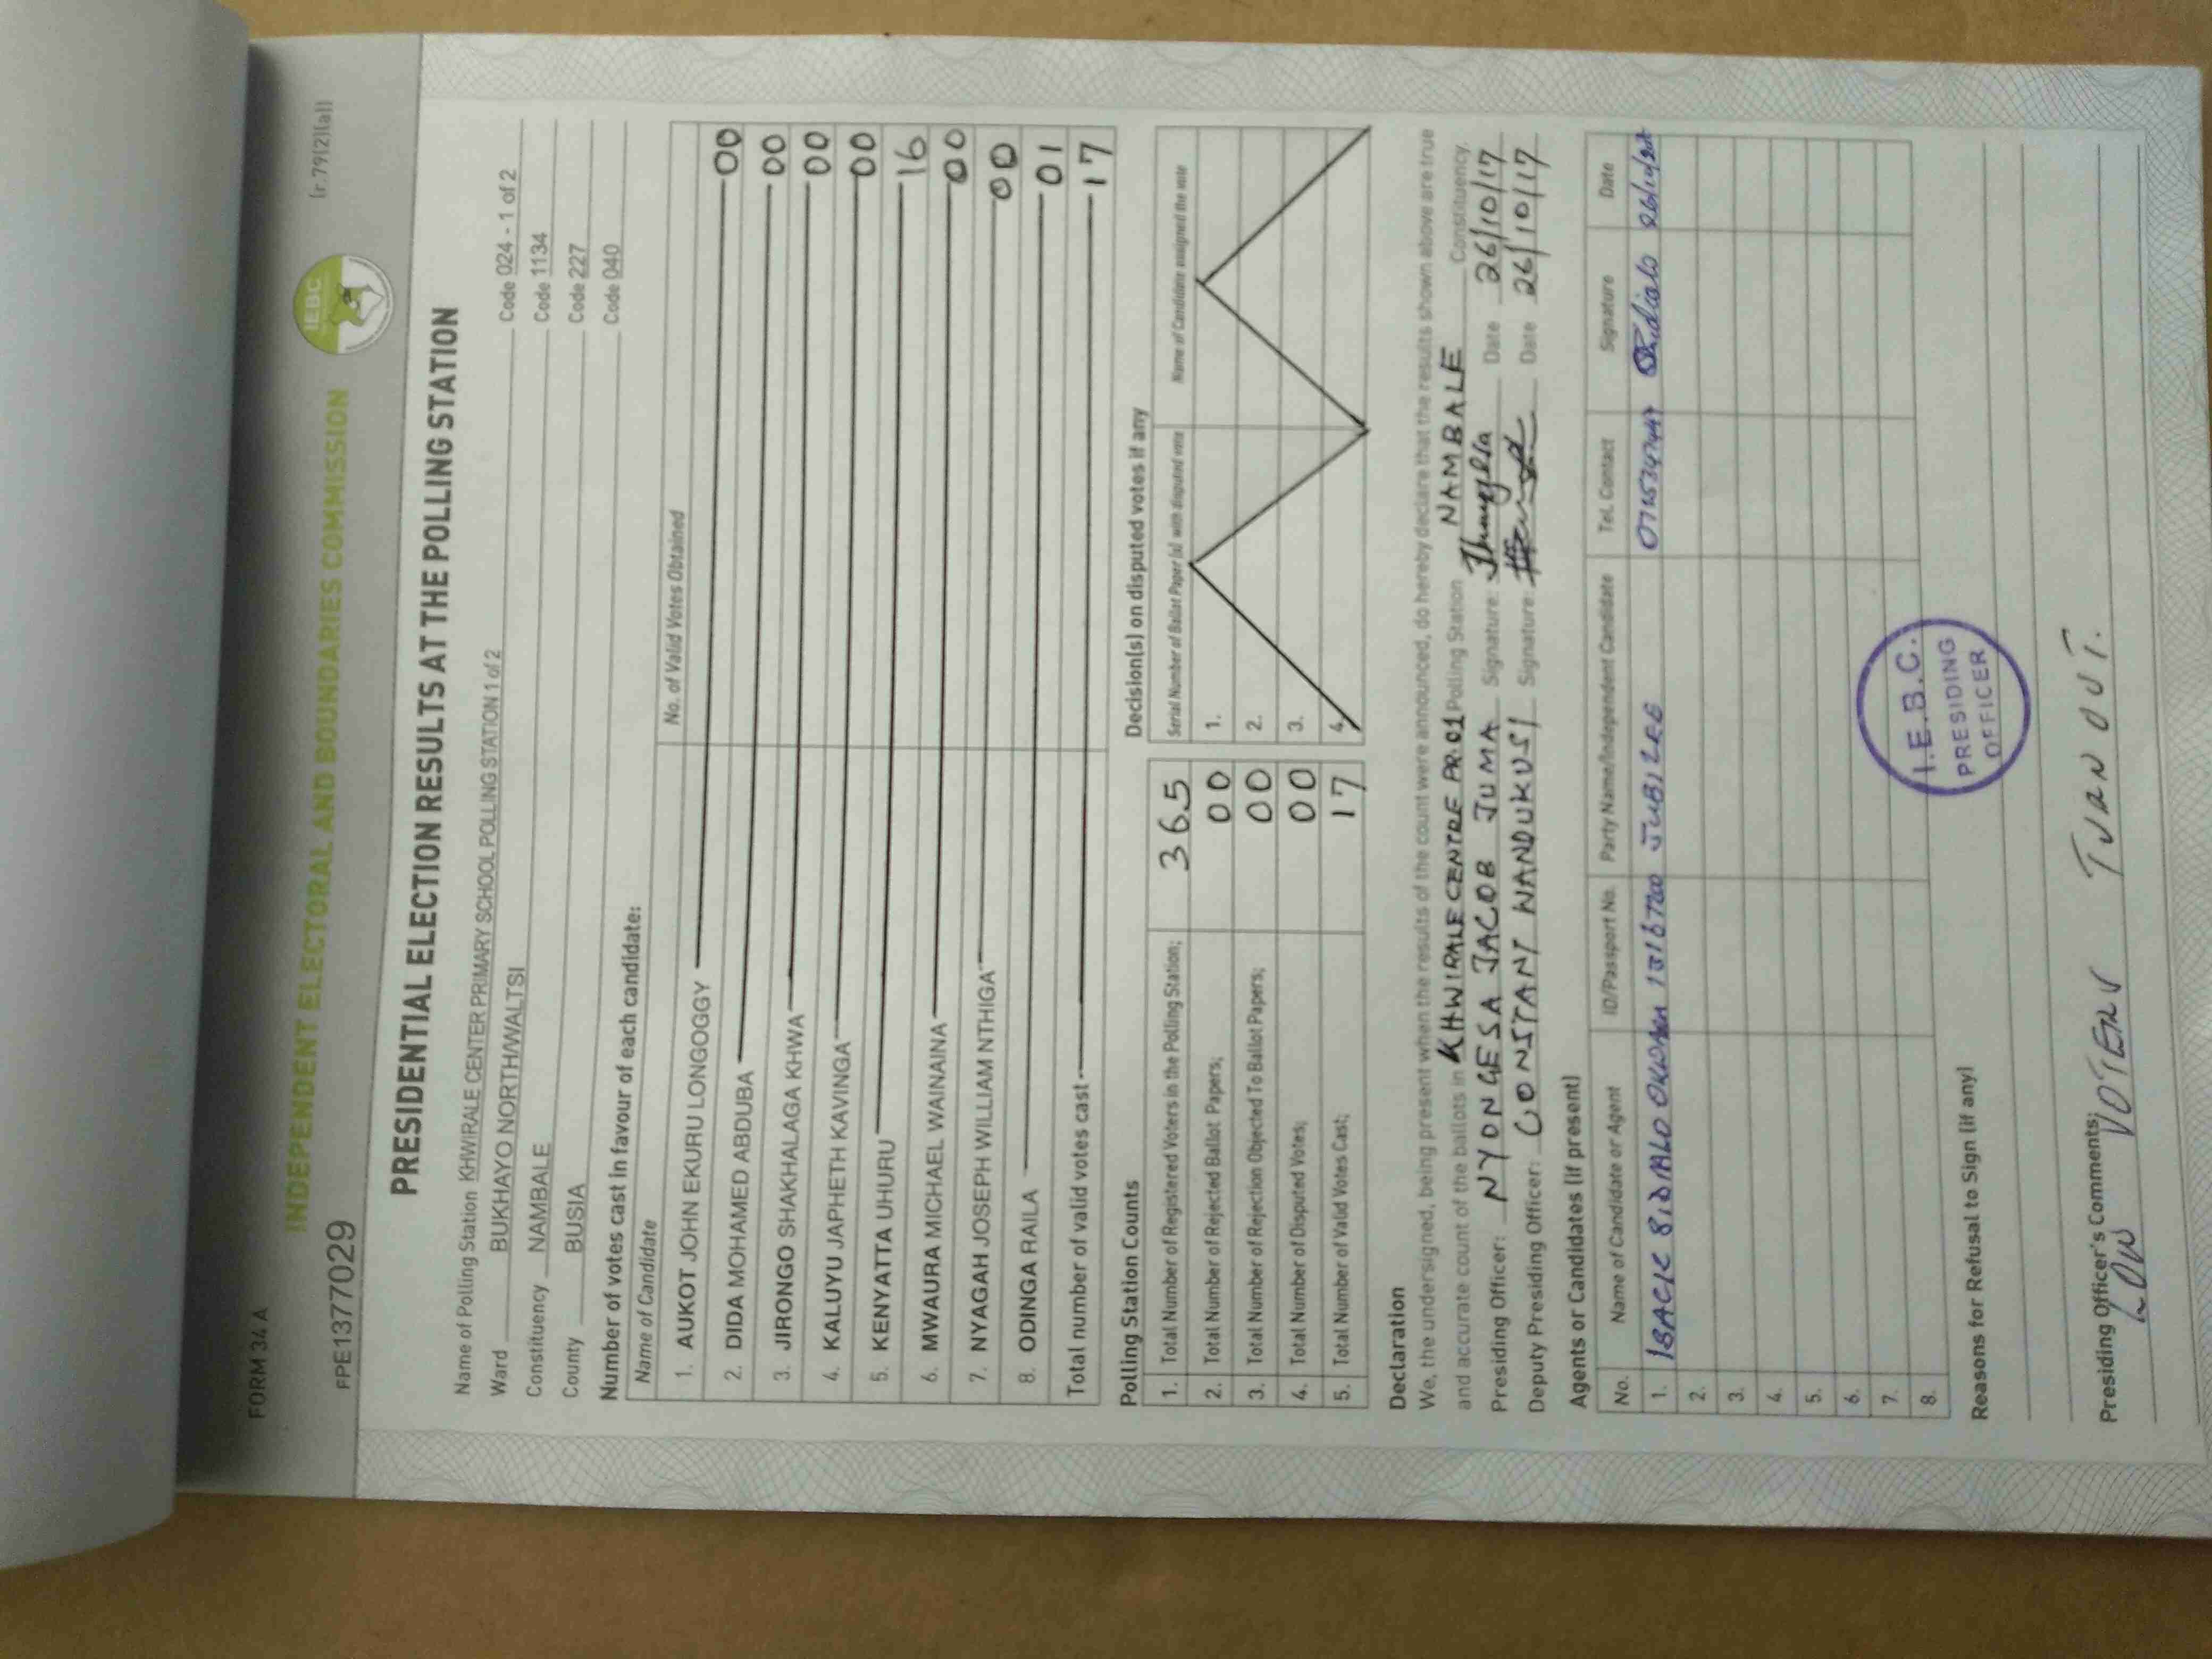 FORM 34 A
(r.79(2)(a))
INDEPENDENT ELECTORAL AND BOUNDARIES COMMISSION
IEBC
FPE1377029
PRESIDENTIAL ELECTION RESULTS AT THE POLLING STATION
Name of Polling Station KHWIRALE CENTER PRIMARY SCHOOL POLLING STATION 1 of 2 Code 024 - 1 of 2
Ward BUKHAYO NORTH/WALTSI Code 1134
Constituency NAMBALE Code 227
County BUSIA Code 040
Number of votes cast in favour of each candidate:
Name of Candidate No. of Valid Votes Obtained
1. AUKOT JOHN EKURU LONGOGGY 00
2. DIDA MOHAMED ABDUBA 00
3. JIRONGO SHAKHALAGA KHWA 00
4. KALUYU JAPHETH KAVINGA 00
5. KENYATTA UHURU 16
6. MWAURA MICHAEL WAINAINA 00
7. NYAGAH JOSEPH WILLIAM NTHIGA 00
8. ODINGA RAILA 01
Total number of valid votes cast 17
Polling Station Counts
1. Total Number of Registered Voters in the Polling Station; 365
2. Total Number of Rejected Ballot Papers; 00
3. Total Number of Rejection Objected To Ballot Papers; 00
4. Total Number of Disputed Votes; 00
5. Total Number of Valid Votes Cast; 17
Decision(s) on disputed votes if any
Serial Number of Ballot Paper (s) with disputed vote Name of Candidate assigned the vote
1.
2.
3.
4.
Declaration
We, the undersigned, being present when the results of the count were announced, do hereby declare that the results shown above are true
and accurate count of the ballots in KHWIRALE CENTRE PR 01 Polling Station NAMBALE Constituency.
Presiding Officer: NYONGESA JACOB JUMA Signature: Date 26/10/17
Deputy Presiding Officer: CONSTANT WANDUKUSI Signature: Date 26/10/17
Agents or Candidates (if present)
No. Name of Candidate or Agent ID/Passport No. Party Name/Independent Candidate Tel. Contact Signature Date
1. JUBILEE
2.
3.
4.
5.
6.
7.
8.
I.E.B.C.
PRESIDING
OFFICER
Reasons for Refusal to Sign (if any)
Presiding Officer's Comments;
LOW VOTERS TURN OUT.